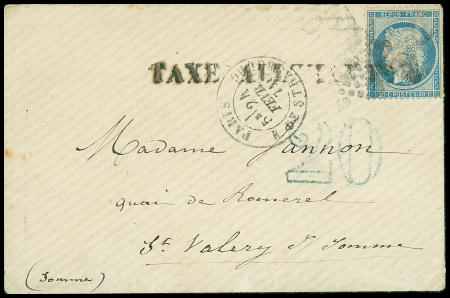 REPUB. FRANC.
20 C. POSTES 20 C.
TAXE
PARIS
FEVR.
20
Madame Jannon
quai de Romerel
St. Valery s/ Somme
(Somme)